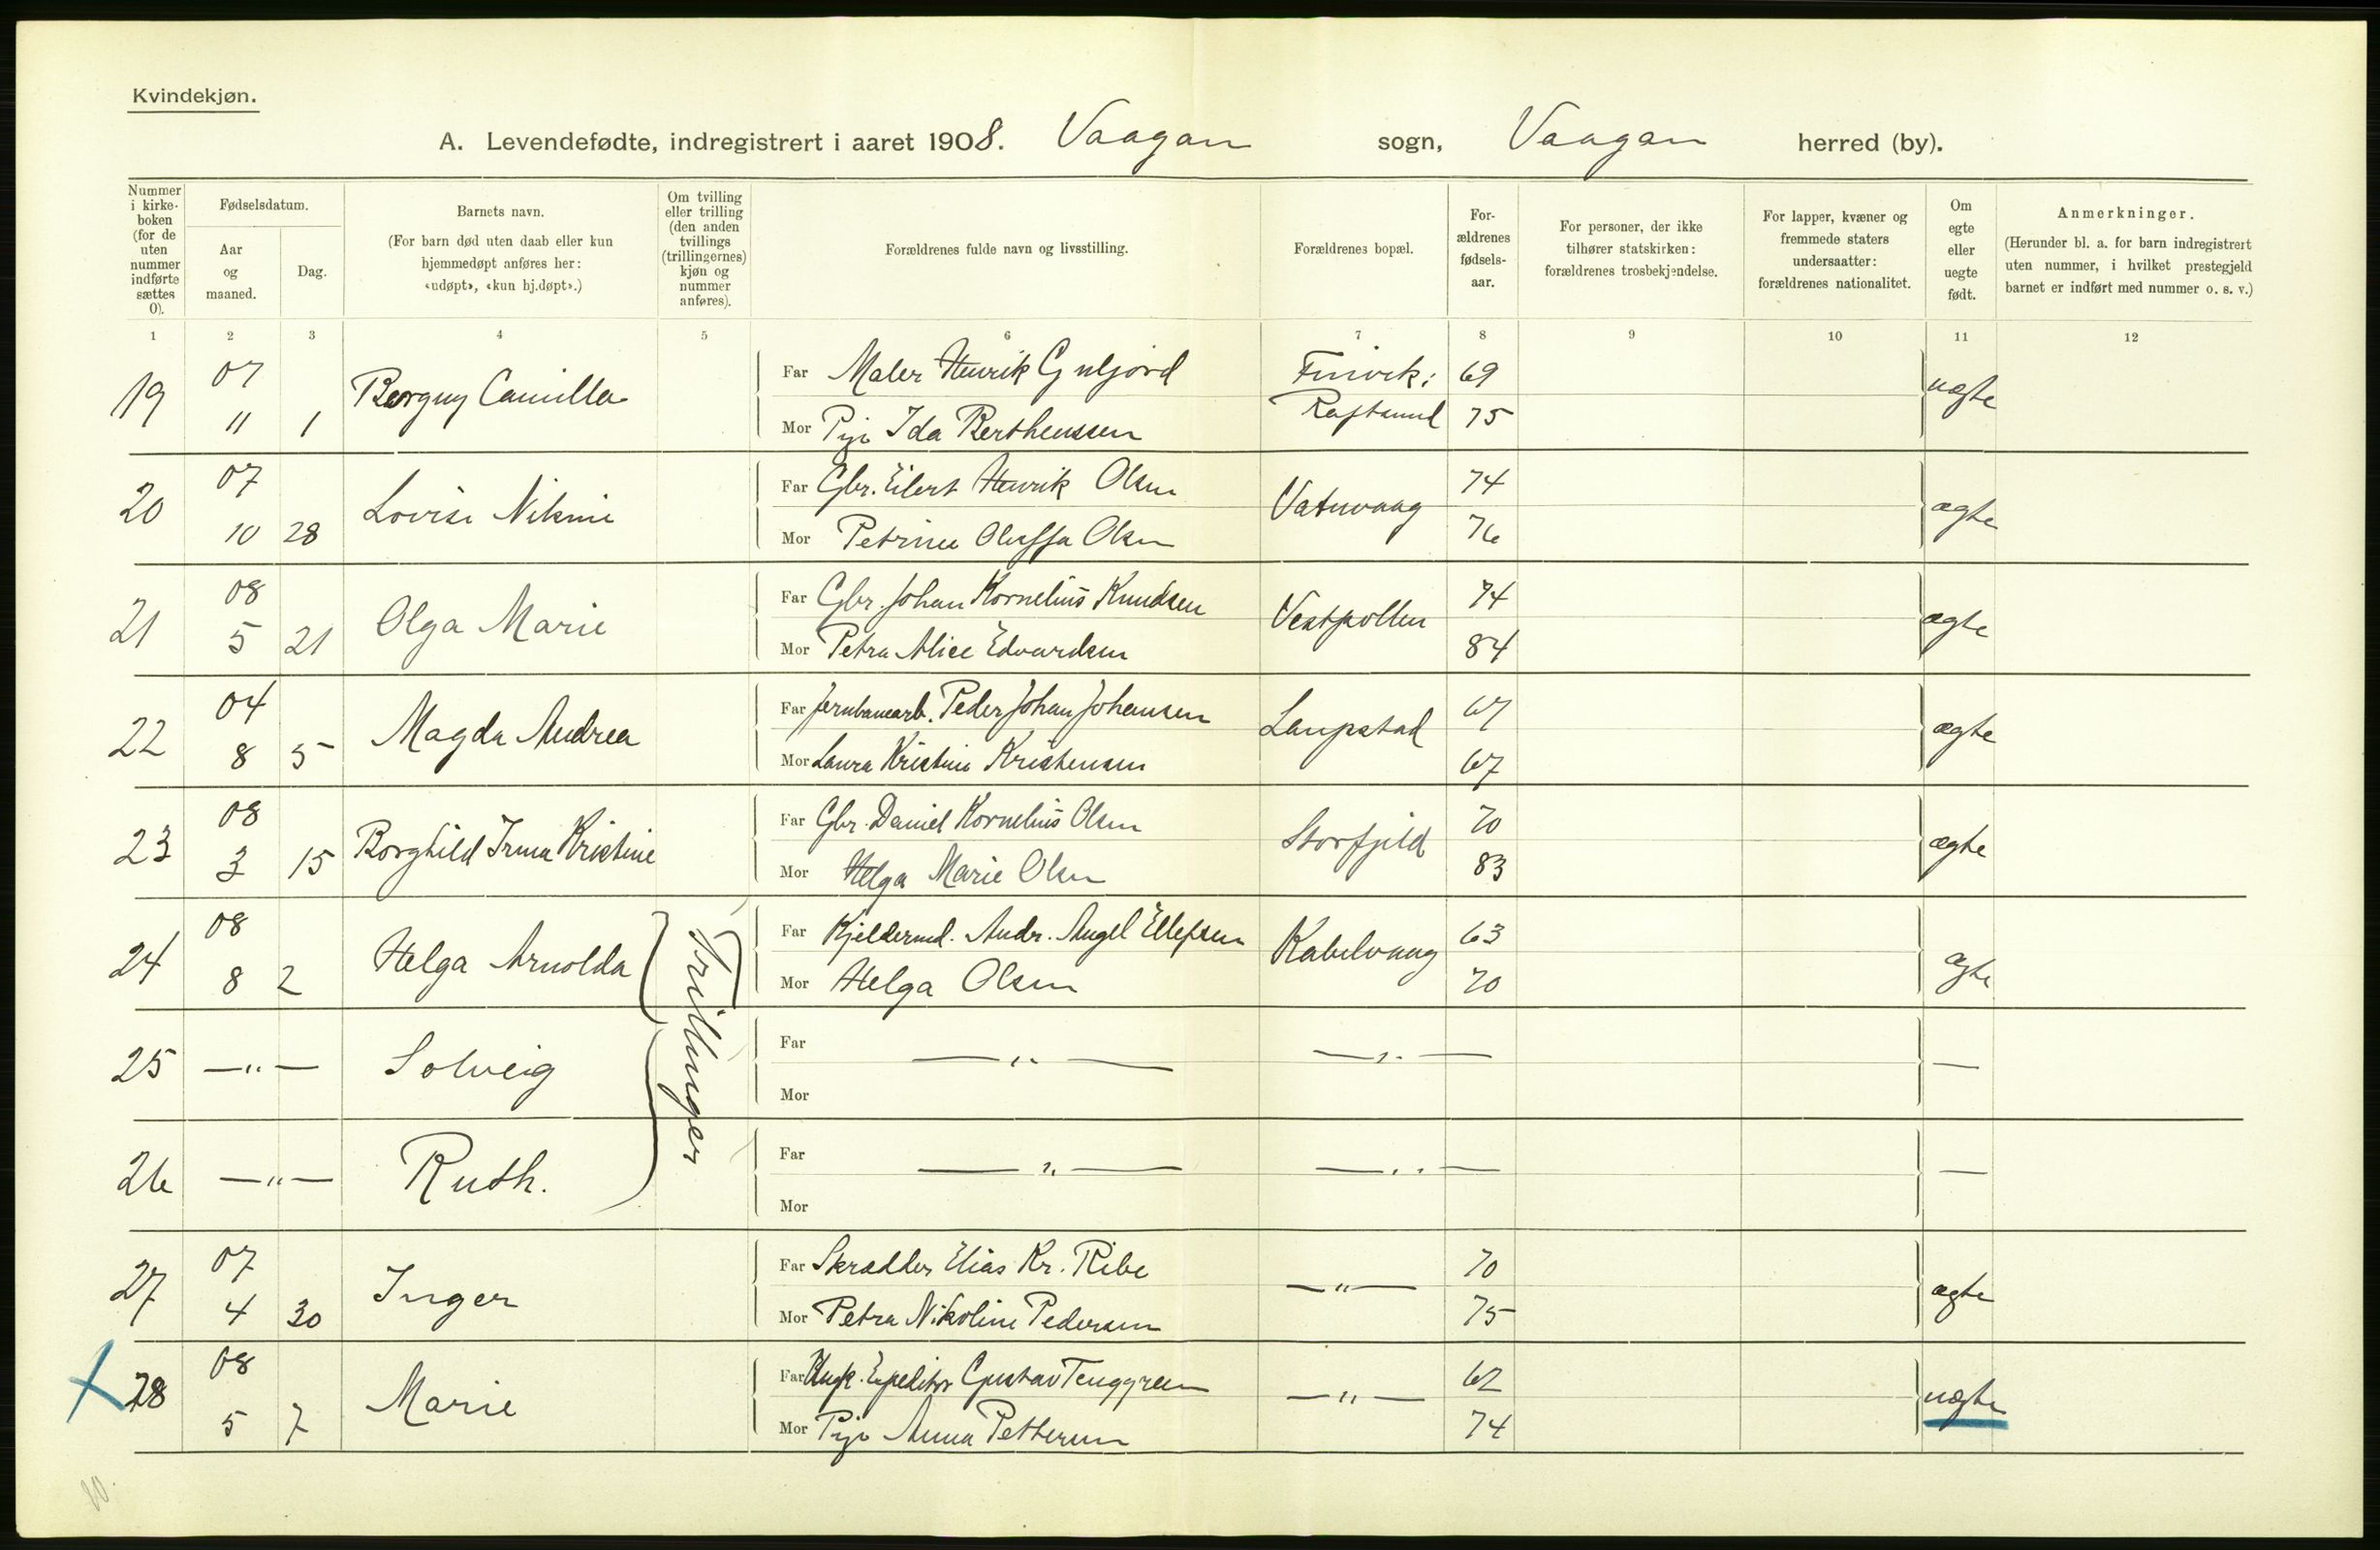 Kvindekjøn.
A. Levendefødte, indregistrert i aaret 1908. Vaagan sogn, Vaagan herred (by).
Nummer i kirke-boken (for de uten nummer indførte sættes 0).
Fødselsdatum.
Aar og maaned.
Dag.
Barnets navn.
(For barn død uten daab eller kun hjemmedøpt anføres her: «udøpt», «kun hj.døpt».)
Om tvilling eller trilling (den anden tvillings (trillingernes) kjøn og nummer anføres).
Forældrenes fulde navn og livsstilling.
Forældrenes bopæl.
For-ældrenes fødsels-aar.
For personer, der ikke tilhører statskirken: forældrenes trosbekjendelse.
For lapper, kvæner og fremmede staters undersaatter: forældrenes nationalitet.
Om egte eller uegte født.
Anmerkninger.
(Herunder bl. a. for barn indregistrert uten nummer, i hvilket prestegjeld barnet er indført med nummer o. s. v.)
1 2 3 4 5 6 7 8 9 10 11 12
19 07 11 1 Borguy Camilla Far Maler Henrik Guljord 69 uægte
Mor Pije Ida Berthenssen Raftsund 75
20 07 10 28 Lovise Far Gbr. Eilert Henrik Olsen Vatnvaag 74 ægte
Mor Petrine Oluffa Olsen 76
21 08 5 21 Olga Marie Far Gbr. Johan Kornelius Knudsen Vestpollen 74 ægte
Mor Petra Alice Edvardsen 84
22 04 8 5 Magda Andrea Far Jernbanearb. Peder Johan Johansen Laupstad 67 ægte
Mor Laura Kristine Kristensen 67
23 08 3 15 Borghild Irma Kristine Far Gbr. Daniel Kornelius Olsen Storfjeld 70 ægte
Mor Helga Marie Olsen 83
24 08 8 2 Helga Arnolda Trillinger Far Kjeldermd. Andr. Angel Ellefsen Kabelvaag 63 ægte
Mor Helga Olsen 70
25 —"— Solveig Far —"— —"— —
Mor
26 —"— Ruth. Far —"— —"— —
Mor
27 07 4 30 Inger Far Skrædder Elias Kr. Ribe —"— 70 ægte
Mor Petra Nikoline Pedersen 75
X 28 08 5 7 Marie Far Ungk. Expeditør Gustav Tenggren —"— 62 uægte
Mor Pije Anna Pettersen 74
10.